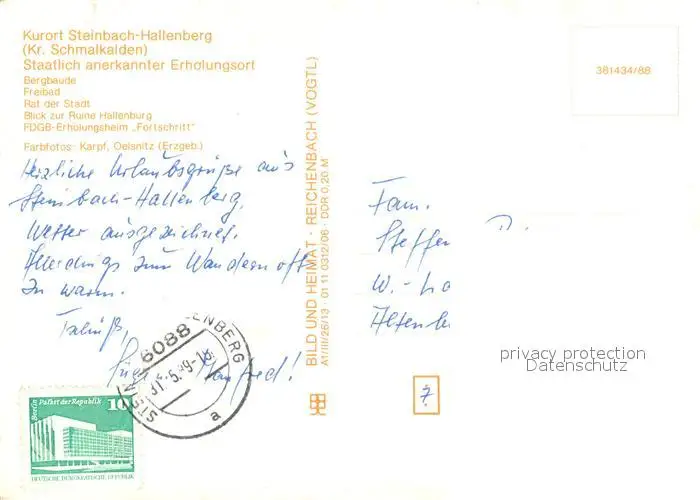 Kurort Steinbach-Hallenberg
(Kr. Schmalkalden)
Staatlich anerkannter Erholungsort
Bergbaude
Freibad
Rat der Stadt
Blick zur Ruine Hallenburg
FDGB-Erholungsheim „Fortschritt"
Farbfotos: Karpf, Oelsnitz (Erzgeb.)
Herzliche Urlaubsgrüße aus
Steinbach-Hallenberg.
Wetter ausgezeichnet.
Allerdings zum Wandern oft
zu warm.
Tschüß,
Manfred!
BILD UND HEIMAT · REICHENBACH (VOGTL)
A1/III/26/13 · 01 11 0312/06 · DDR 0,20 M
381434/88
Fam.
Steffen
W.-
Altenb
7
privacy protection
Datenschutz
6088
Berlin Palast der Republik 10
DEUTSCHE DEMOKRATISCHE REPUBLIK
a